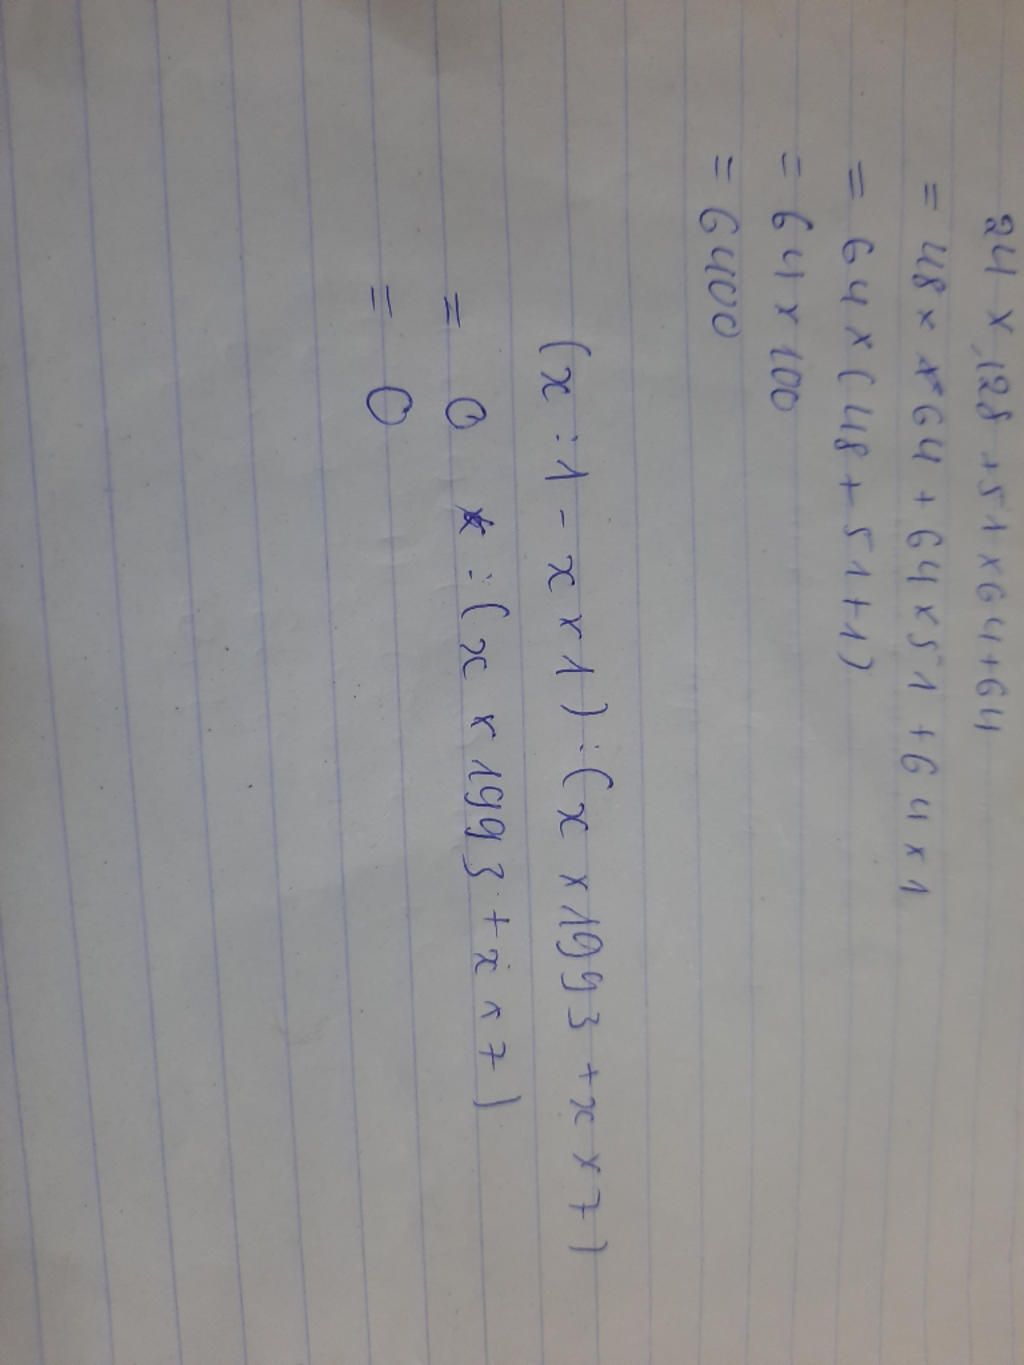 24 x 128 + 51 x 64 + 64
= 48 x x 64 + 64 x 51 + 64 x 1
= 64 x ( 48 + 51 + 1 )
= 64 x 100
= 6400
( x : 1 - x x 1 ) : ( x x 1993 + x x 7 )
= 0 : ( x x 1993 + x x 7 )
= 0